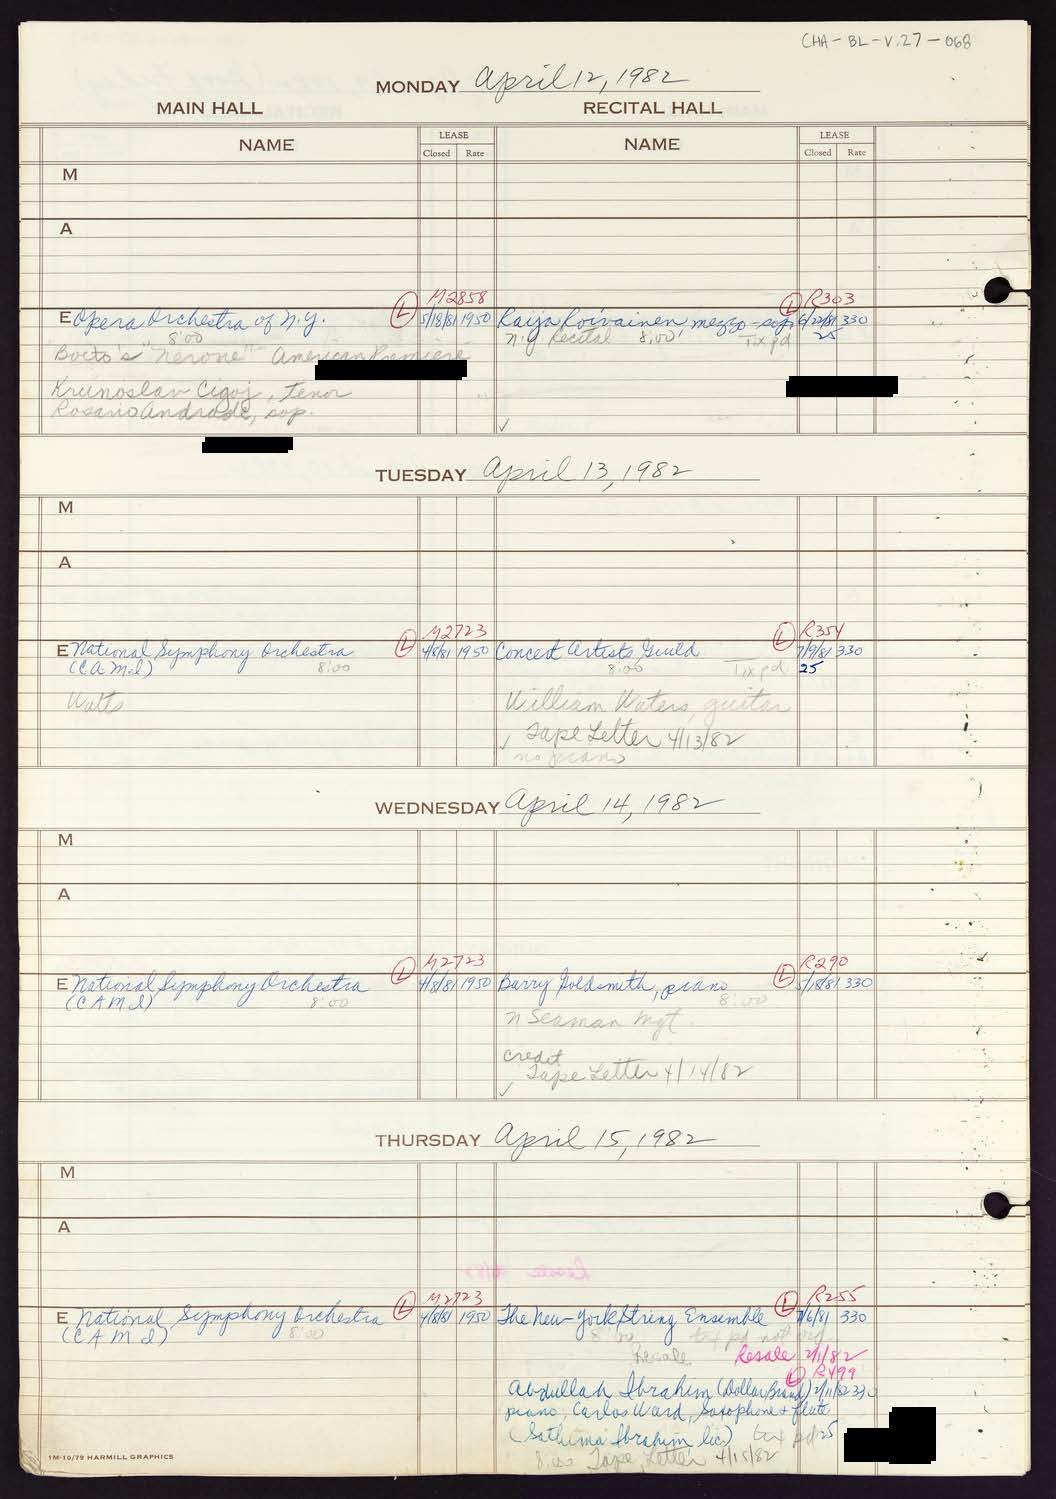 CHA-BL-V.27-068
MONDAY April 12, 1982
MAIN HALL RECITAL HALL
NAME LEASE NAME LEASE
Closed Rate Closed Rate
M
A
M2858 R303
E Opera Orchestra of N.Y. L 5/18/81 1950 Raija Roivainen, mezzo-sop. L 6/22/81 330
8:00 N.Y. Recital 8:00 Tix pd 25
Boito's "Nerone" American Premiere
Krunoslav Cigoj, tenor
Rosario Andrade, sop.
✓
TUESDAY April 13, 1982
M
A
M2723 R354
E National Symphony Orchestra L 4/8/81 1950 Concert Artists Guild L 7/9/81 330
(CAMI) 8:00 8:00 Tix pd 25
Watts William Waters, guitar
✓ Tape Letter 4/13/82
no piano
WEDNESDAY April 14, 1982
M
A
M2723 R290
E National Symphony Orchestra L 4/8/81 1950 Barry Goldsmith, piano L 5/18/81 330
(CAMI) 8:00 8:00
N Seaman Mgt.
credit
Tape Letter 4/14/82
✓
THURSDAY April 15, 1982
M
A
M2723 R255
E National Symphony Orchestra L 4/8/81 1950 The New York String Ensemble L 7/6/81 330
(CAMI) 8:00 8:00 tix pd not org.
Resale Resale 2/1/82
L R499
Abdullah Ibrahim (Dollar Brand) 2/11/82 330
piano, Carlos Ward, Saxophone & flute
(Sathima Ibrahim, lic.) tix pd 25
8:00 Tape Letter 4/15/82
1M-10/79 HARMILL GRAPHICS